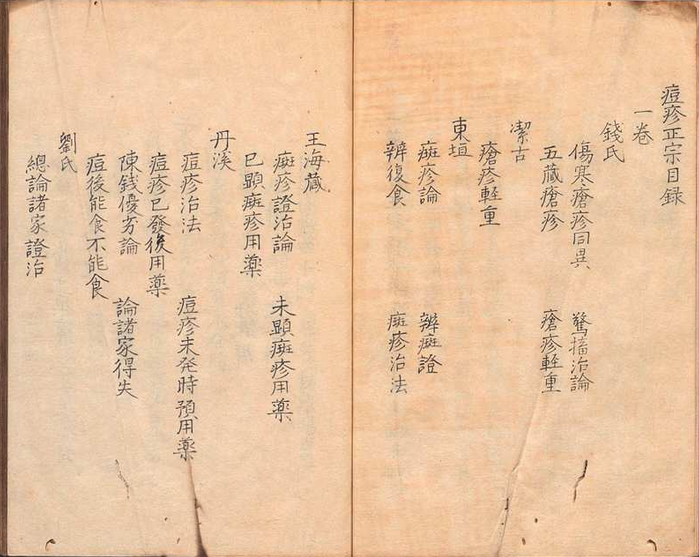 痘疹正宗目録
一巻
錢氏
傷寒瘡疹同異　驚搐治論
五藏瘡疹　瘡疹軽重
潔古
瘡疹軽重
東垣
癍疹論　辨癍證
辨復食　癍疹治法
王海藏
癍疹證治論　未顕癍疹用薬
已顕癍疹用薬
丹溪
痘疹治法　痘疹未発時預用薬
痘疹已發後用薬
陳錢優劣論　論諸家得失
痘後能食不能食
劉氏
總論諸家證治